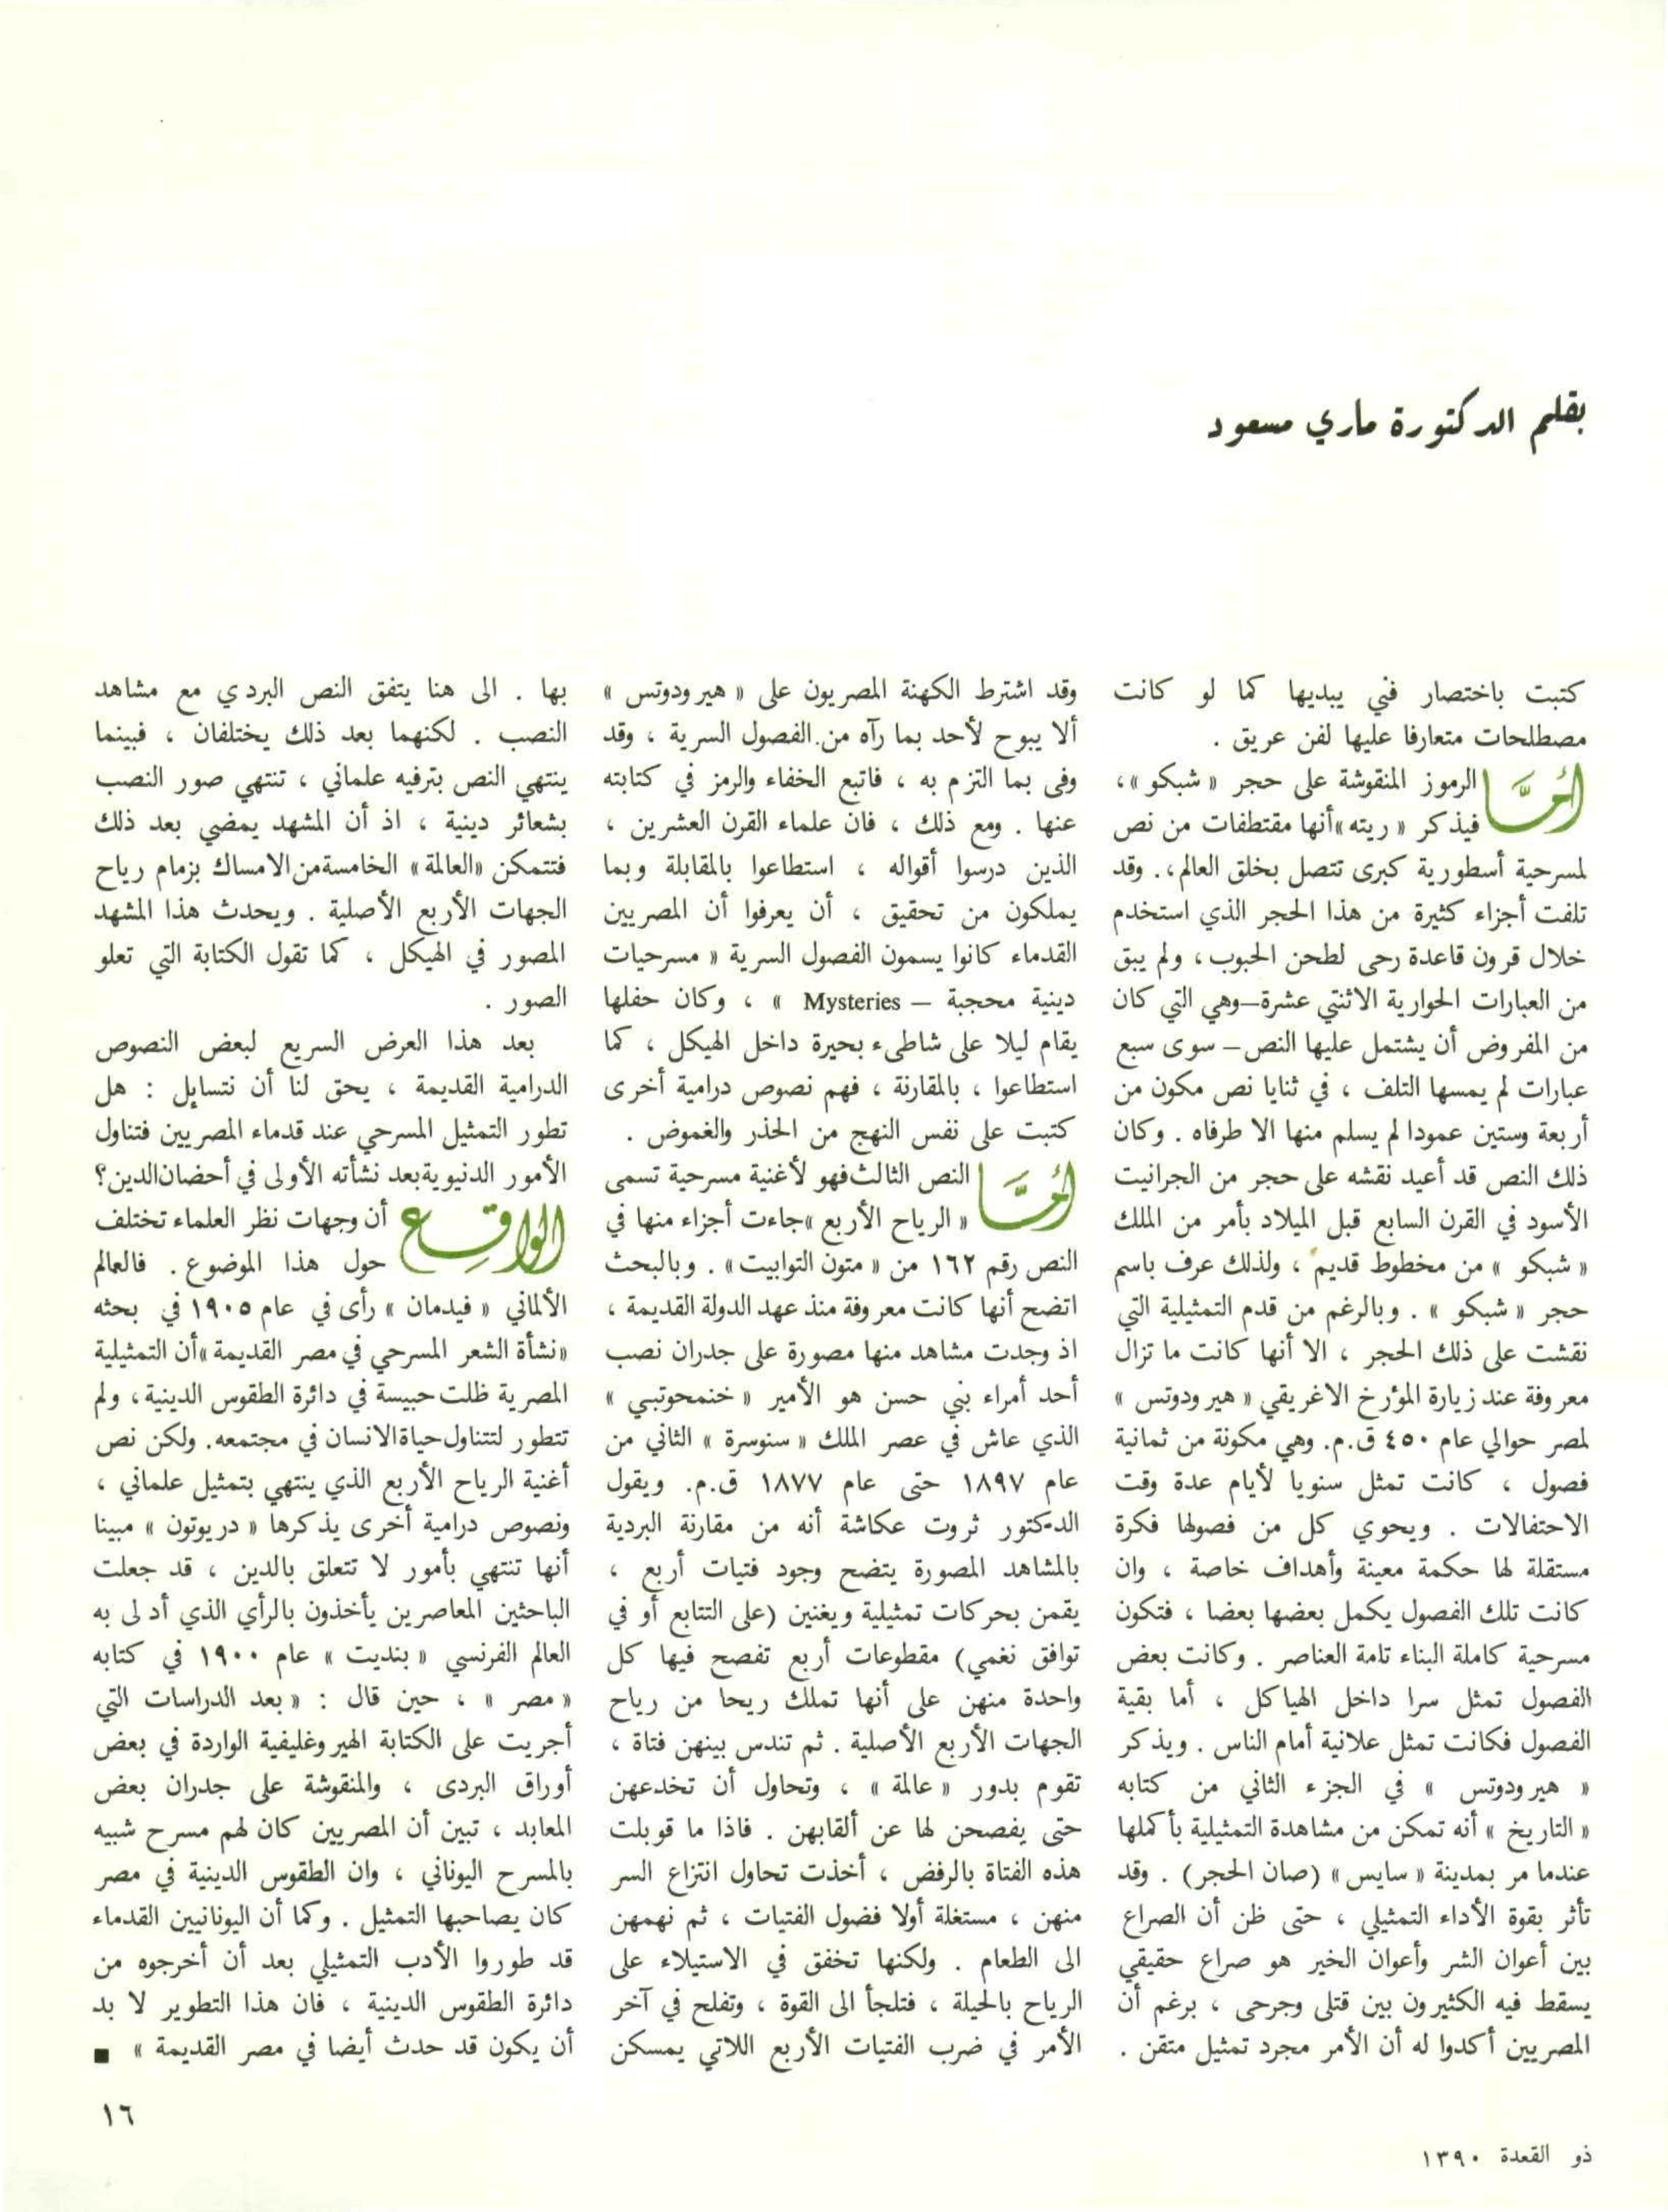 بقلم الدكتورة ماري مسعود
كتبت باختصار فني يبديها كما لو كانت
مصطلحات متعارفا عليها لفن عريق .
أمَّا الرموز المنقوشة على حجر « شبكو » ،
فيذكر « ريته » أنها مقتطفات من نص
لمسرحية أسطورية كبرى تتصل بخلق العالم ، . وقد
تلفت أجزاء كثيرة من هذا الحجر الذي استخدم
خلال قرون قاعدة رحى لطحن الحبوب ، ولم يبق
من العبارات الحوارية الاثنتي عشرة – وهي التي كان
من المفروض أن يشتمل عليها النص – سوى سبع
عبارات لم يمسها التلف ، في ثنايا نص مكون من
أربعة وستين عمودا لم يسلم منها الا طرفاه . وكان
ذلك النص قد أعيد نقشه على حجر من الجرانيت
الأسود في القرن السابع قبل الميلاد بأمر من الملك
« شبكو » من مخطوط قديم ، ولذلك عرف باسم
حجر « شبكو » . وبالرغم من قدم التمثيلية التي
نقشت على ذلك الحجر ، الا أنها كانت ما تزال
معروفة عند زيارة المؤرخ الاغريقي « هيرودوتس »
لمصر حوالي عام ٤٥٠ ق.م. وهي مكونة من ثمانية
فصول ، كانت تمثل سنويا لأيام عدة وقت
الاحتفالات . ويحوي كل من فصولها فكرة
مستقلة لها حكمة معينة وأهداف خاصة ، وان
كانت تلك الفصول يكمل بعضها بعضا ، فتكون
مسرحية كاملة البناء تامة العناصر . وكانت بعض
الفصول تمثل سرا داخل الهياكل ، أما بقية
الفصول فكانت تمثل علانية أمام الناس . ويذكر
« هيرودوتس » في الجزء الثاني من كتابه
« التاريخ » أنه تمكن من مشاهدة التمثيلية بأكملها
عندما مر بمدينة « سايس » (صان الحجر) . وقد
تأثر بقوة الأداء التمثيلي ، حتى ظن أن الصراع
بين أعوان الشر وأعوان الخير هو صراع حقيقي
يسقط فيه الكثيرون بين قتلى وجرحى ، برغم أن
المصريين أكدوا له أن الأمر مجرد تمثيل متقن .
وقد اشترط الكهنة المصريون على « هيرودوتس »
ألا يبوح لأحد بما رآه من الفصول السرية ، وقد
وفى بما التزم به ، فاتبع الخفاء والرمز في كتابته
عنها . ومع ذلك ، فان علماء القرن العشرين ،
الذين درسوا أقواله ، استطاعوا بالمقابلة وبما
يملكون من تحقيق ، أن يعرفوا أن المصريين
القدماء كانوا يسمون الفصول السرية « مسرحيات
دينية محجبة – Mysteries » ، وكان حفلها
يقام ليلا على شاطىء بحيرة داخل الهيكل ، كما
استطاعوا ، بالمقارنة ، فهم نصوص درامية أخرى
كتبت على نفس النهج من الحذر والغموض .
أمَّا النص الثالث فهو لأغنية مسرحية تسمى
« الرياح الأربع » جاءت أجزاء منها في
النص رقم ١٦٢ من « متون التوابيت » . وبالبحث
اتضح أنها كانت معروفة منذ عهد الدولة القديمة ،
اذ وجدت مشاهد منها مصورة على جدران نصب
أحد أمراء بني حسن هو الأمير « خنمحوتبي »
الذي عاش في عصر الملك « سنوسرة » الثاني من
عام ١٨٩٧ حتى عام ١٨٧٧ ق.م. ويقول
الدكتور ثروت عكاشة أنه من مقارنة البردية
بالمشاهد المصورة يتضح وجود فتيات أربع ،
يقمن بحركات تمثيلية ويغنين (على التتابع أو في
توافق نغمي) مقطوعات أربع تفصح فيها كل
واحدة منهن على أنها تملك ريحا من رياح
الجهات الأربع الأصلية . ثم تندس بينهن فتاة ،
تقوم بدور « عالمة » ، وتحاول أن تخدعهن
حتى يفصحن لها عن ألقابهن . فاذا ما قوبلت
هذه الفتاة بالرفض ، أخذت تحاول انتزاع السر
منهن ، مستغلة أولا فضول الفتيات ، ثم نهمهن
الى الطعام . ولكنها تخفق في الاستيلاء على
الرياح بالحيلة ، فتلجأ الى القوة ، وتفلح في آخر
الأمر في ضرب الفتيات الأربع اللاتي يمسكن
بها . الى هنا يتفق النص البردي مع مشاهد
النصب . لكنهما بعد ذلك يختلفان ، فبينما
ينتهي النص بترفيه علماني ، تنتهي صور النصب
بشعائر دينية ، اذ أن المشهد يمضي بعد ذلك
فتتمكن «العالمة» الخامسة من الامساك بزمام رياح
الجهات الأربع الأصلية . ويحدث هذا المشهد
المصور في الهيكل ، كما تقول الكتابة التي تعلو
الصور .
بعد هذا العرض السريع لبعض النصوص
الدرامية القديمة ، يحق لنا أن نتسايل : هل
تطور التمثيل المسرحي عند قدماء المصريين فتناول
الأمور الدنيوية بعد نشأته الأولى في أحضان الدين ؟
الواقع أن وجهات نظر العلماء تختلف
حول هذا الموضوع . فالعالم
الألماني « فيدمان » رأى في عام ١٩٠٥ في بحثه
«نشأة الشعر المسرحي في مصر القديمة» أن التمثيلية
المصرية ظلت حبيسة في دائرة الطقوس الدينية ، ولم
تتطور لتتناول حياة الانسان في مجتمعه. ولكن نص
أغنية الرياح الأربع الذي ينتهي بتمثيل علماني ،
ونصوص درامية أخرى يذكرها « دريوتون » مبينا
أنها تنتهي بأمور لا تتعلق بالدين ، قد جعلت
الباحثين المعاصرين يأخذون بالرأي الذي أدلى به
العالم الفرنسي « بنديت » عام ١٩٠٠ في كتابه
« مصر » ، حين قال : « بعد الدراسات التي
أجريت على الكتابة الهيروغليفية الواردة في بعض
أوراق البردى ، والمنقوشة على جدران بعض
المعابد ، تبين أن المصريين كان لهم مسرح شبيه
بالمسرح اليوناني ، وان الطقوس الدينية في مصر
كان يصاحبها التمثيل . وكما أن اليونانيين القدماء
قد طوروا الأدب التمثيلي بعد أن أخرجوه من
دائرة الطقوس الدينية ، فان هذا التطوير لا بد
أن يكون قد حدث أيضا في مصر القديمة » ■
١٦
ذو القعدة ١٣٩٠